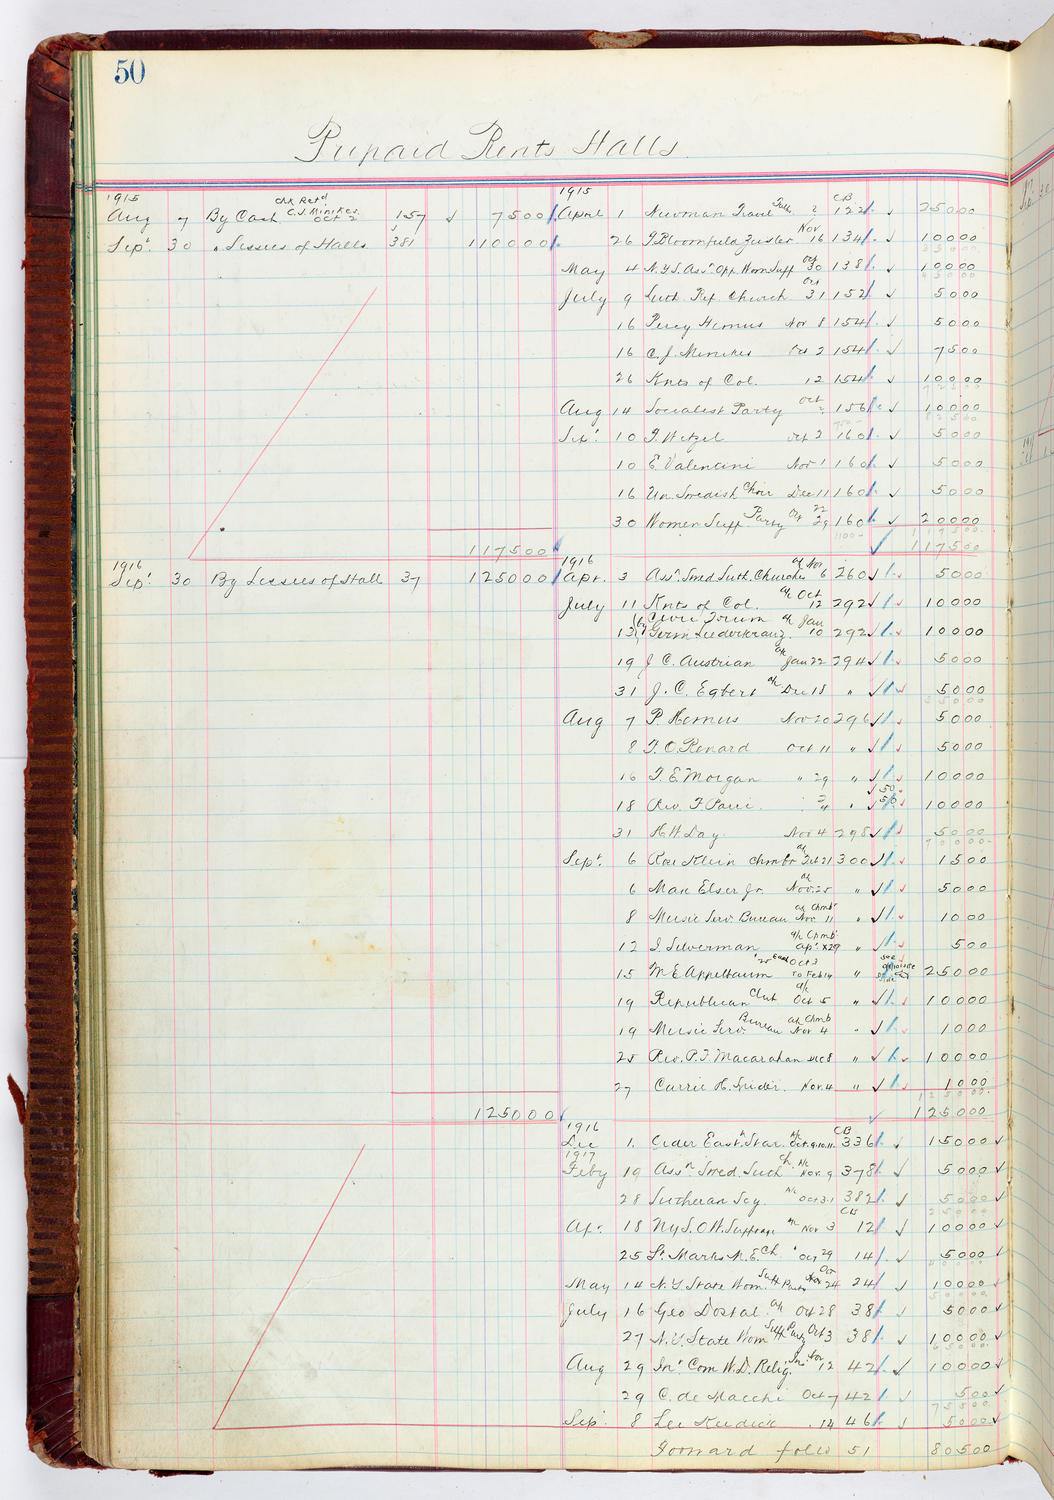 50
Prepaid Rents Halls
1915
Aug 7 By Cash Chk Ret'd C.J. Minikes Oct 2 157 ✓ 75 00
Sept 30 " Lessees of Halls 381 1100 00
1175 00
1916
Sept 30 By Lessees of Hall 37 1250 00
1250 00
1915 CB
April 1 Newman Travel Talks 2 122 ✓ 250 00
26 F. Bloomfield Zeisler Nov 16 134 ✓ 100 00
May 4 N.Y.S. Assn Opp. Wom Suff Oct 30 138 ✓ 100 00
July 9 Luth. Ref. Church Oct 31 152 ✓ 50 00
16 Percy Hemus Nov 8 154 ✓ 50 00
16 C.J. Minikes Oct 2 154 ✓ 75 00
26 Knts of Col. 12 154 ✓ 100 00
Aug 14 Socialist Party Oct 156 ✓ 100 00
Sept 10 F. Wetzel Oct 2 160 ✓ 50 00
10 E Valentini Nov 1 160 ✓ 50 00
16 Un. Swedish Choir Dec 11 160 ✓ 50 00
30 Women Suff. Party 22 29 160 ✓ 200 00
1175 00
1916
Apr. 3 Assn Swed. Luth. Churches a/c Nov 6 260 ✓ 50 00
July 11 Knts of Col. a/c Oct 12 292 ✓ 100 00
Civic Forum a/c Jan
13 Germ Liederkranz 10 292 ✓ 100 00
19 J C. Austrian a/c Jan 22 294 ✓ 50 00
31 J. C. Egbert a/c Dec 18 " ✓ 50 00
Aug 7 P. Hemus Nov 20 296 ✓ 50 00
8 F. O. Renard Oct 11 " ✓ 50 00
16 T. E. Morgan " 29 " ✓ 100 00
18 Rev. F. " ✓ 50 50 100 00
31 H. W. Day Nov 4 298 ✓ 50 00
Sept 6 Roe Klein Chmbr a/c Feb 21 300 ✓ 15 00
6 Max Elser Jr a/c Nov. 25 " ✓ 50 00
8 Music Serv. Bureau a/c Chmb Nov. 11 " ✓ 10 00
12 S. Silverman a/c Chmb " ✓ 5 00
15 M. E. Appelbaum "25 Each Oct 3 to Feb 14 " see opposite side 250 00
19 Republican Club a/c Oct 5 " ✓ 100 00
19 Music Serv. Bureau a/c Chmb Nov 4 " ✓ 10 00
25 Rev. P. F. Macarahan Dec 8 " ✓ 100 00
27 Carrie H. Snider Nov. 4 " ✓ 10 00
1250 00
1916 CB
Dec 1 Order Eastn Star a/c Oct. 9.10.11 336 ✓ 150 00 ✓
1917
Feby 19 Assn Swed. Luth Ch. a/c Nov. 9 378 ✓ 50 00 ✓
28 Lutheran Soy a/c Oct 31 382 ✓ 50 00 ✓
CB
Apr. 18 Ny S. O. W. Suffrage a/c Nov 3 12 ✓ 100 00 ✓
25 St. Marks M. E Ch. " Oct 29 14 ✓ 50 00 ✓
May 14 N. Y State Wom. Suff Party Oct 24 24 ✓ 100 00 ✓
July 16 Geo Dostal a/c Oct 28 38 ✓ 50 00 ✓
27 N. Y. State Wom Suff Party Oct 3 38 ✓ 100 00 ✓
Aug 29 Int Com W. D. Relig. In. Nov 12 42 ✓ 100 00 ✓
29 C. de Macchi Oct 7 42 ✓ 5 00 ✓
Sept 8 Lee Keedick " 14 46 ✓ 50 00 ✓
Forward folio 51 805 00